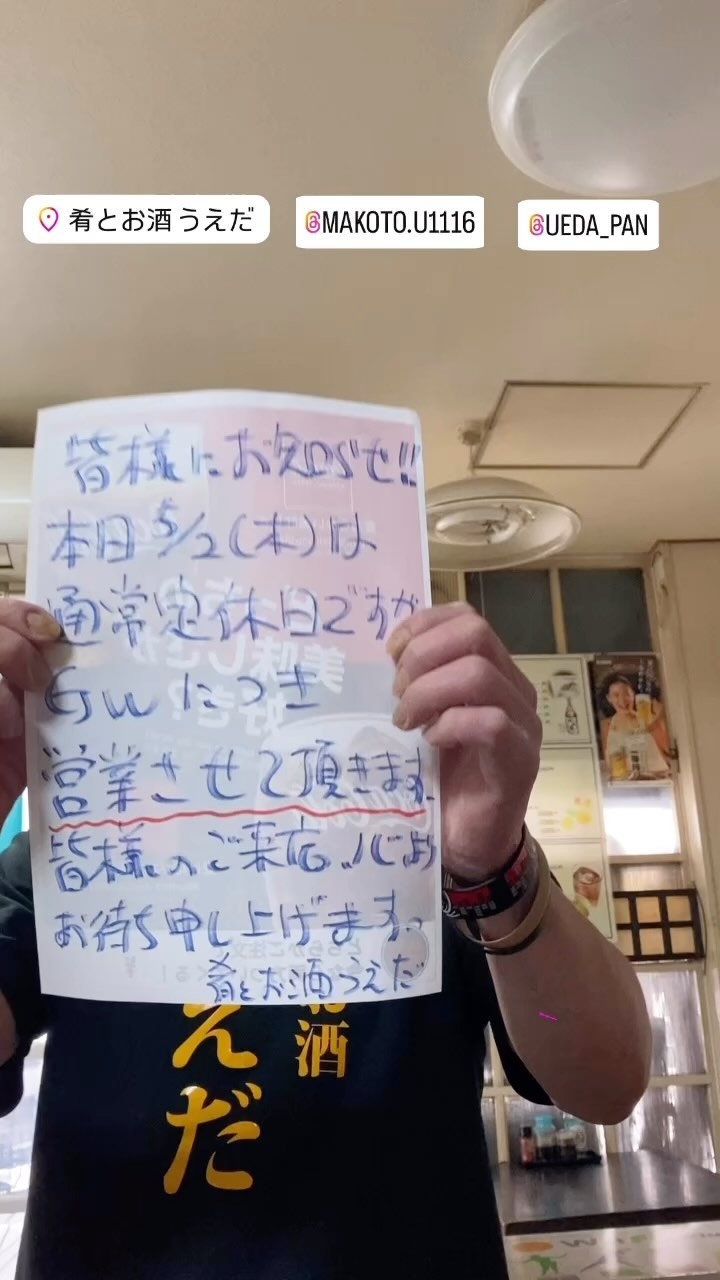 肴とお酒 うえだ
@MAKOTO.U1116
@UEDA_PAN
皆様にお知らせ!!
本日5/2(木)は
通常定休日ですが
GWにつき
営業させて頂きます。
皆様のご来店、心より
お待ち申し上げます。
肴とお酒うえだ
美味しさが
好き?
お酒
えだ